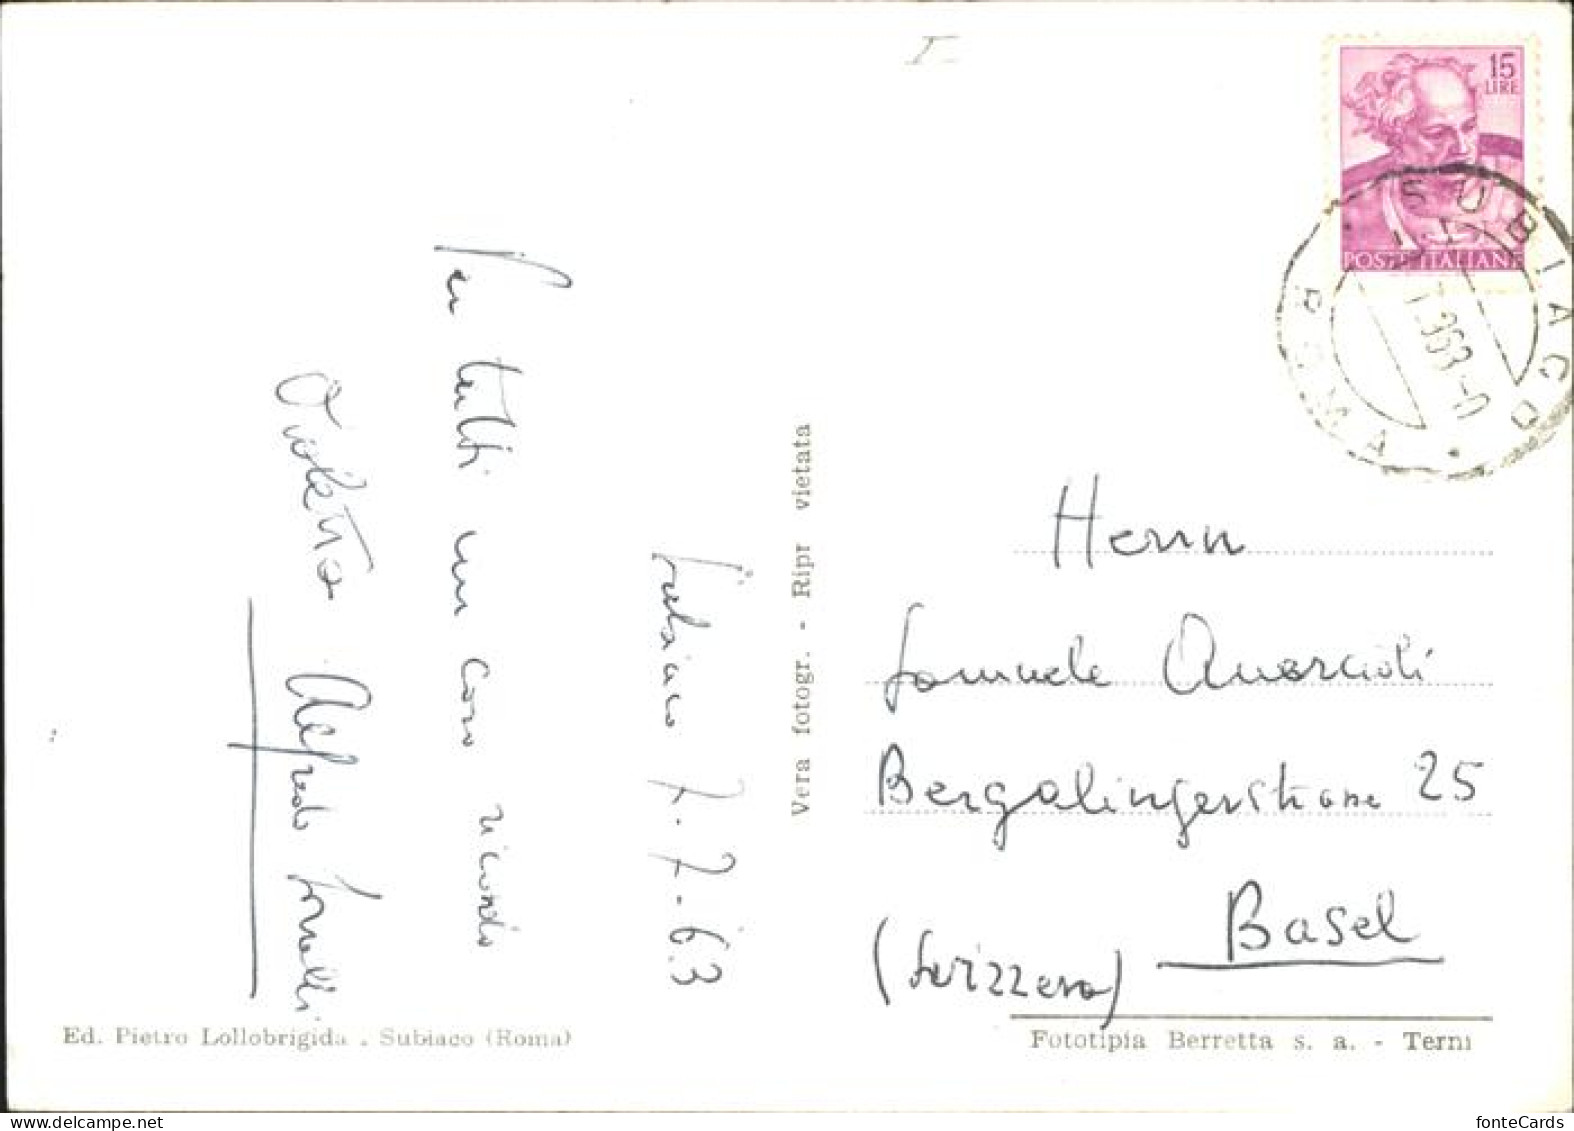 15
LIRE
POSTE ITALIANE
SUBIACO
ROMA
Subiaco 7.7.63
Per tutti un caro ricordo
Violetta Alfredo
Vera fotogr. - Ripr vietata
Herrn
Samuele
Bergalingerstrasse 25
Basel
(Svizzera)
Ed. Pietro Lollobrigida . Subiaco (Roma)
Fototipia Berretta s. a. - Terni
fonteCards